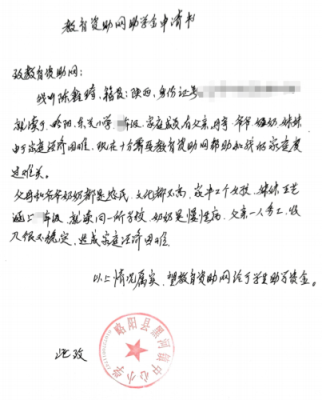 教育资助网助学金申请书
致教育资助网：
我叫陈 籍贯：陕西，身份证号
就读于略阳 小学 年级，家庭成员有父亲、母亲、爷爷、奶奶、妹妹
由于家庭经济困难，现在十分需要教育资助网帮助和我的家庭度
过难关。
父母和爷爷奶奶都是农民，文化都不高，家中2个女孩，妹妹
上 年级，就读同一所学校，奶奶是慢性病，父亲一人务工，收
入很不稳定，造成家庭经济困难。
以上情况属实，望教育资助网给予 助学资金。
此致
略阳县 河镇中心小学